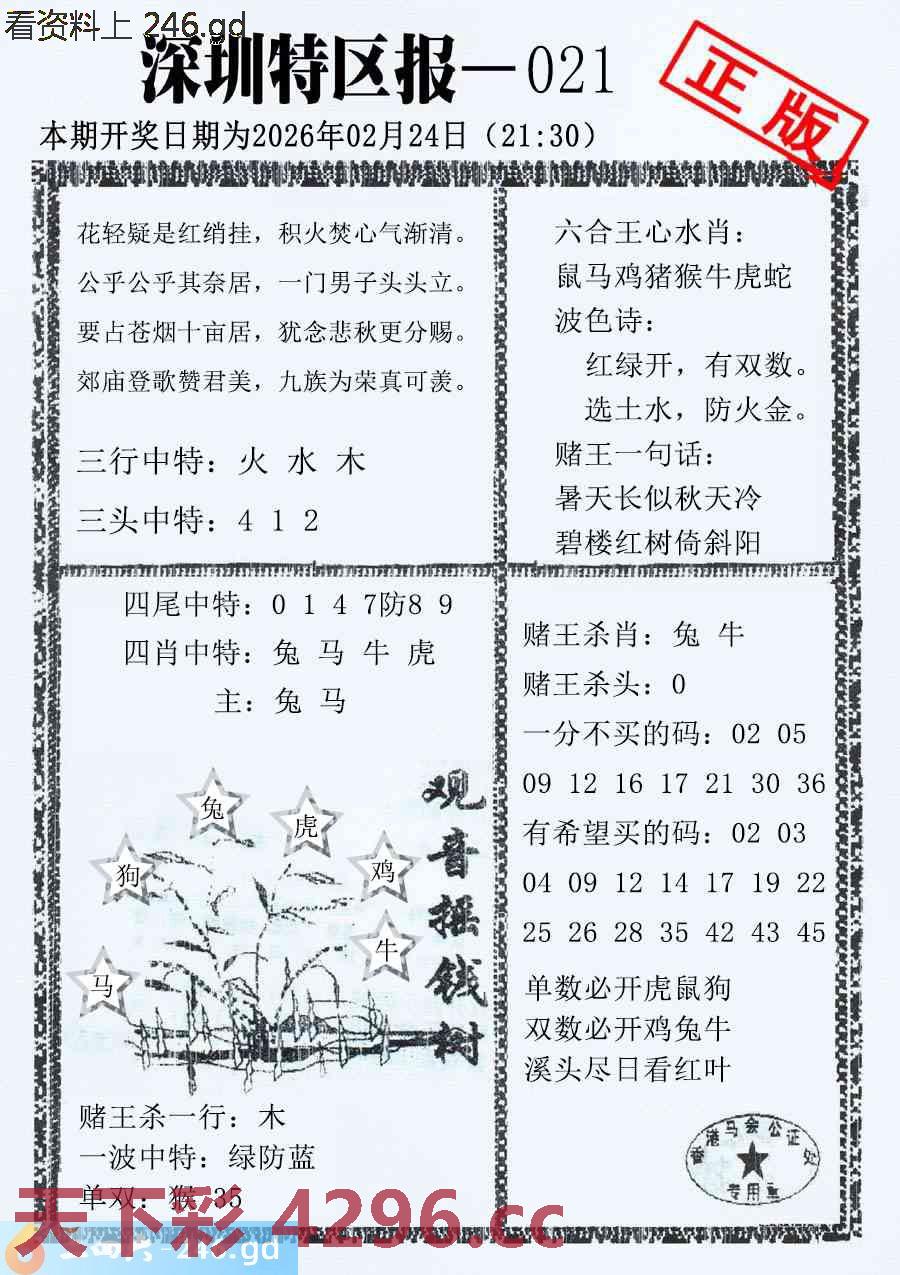 看资料上 246.gd
深圳特区报—021
正版
本期开奖日期为2026年02月24日（21:30）
花轻疑是红绡挂，积火焚心气渐清。
公乎公乎其奈居，一门男子头头立。
要占苍烟十亩居，犹念悲秋更分赐。
郊庙登歌赞君美，九族为荣真可羡。
三行中特：火 水 木
三头中特：4 1 2
六合王心水肖：
鼠马鸡猪猴牛虎蛇
波色诗：
红绿开，有双数。
选土水，防火金。
赌王一句话：
暑天长似秋天冷
碧楼红树倚斜阳
四尾中特：0 1 4 7防8 9
四肖中特：兔 马 牛 虎
主：兔 马
兔
虎
狗
鸡
牛
马
观音摇钱树
赌王杀一行：木
一波中特：绿防蓝
单双：猴 35
赌王杀肖：兔 牛
赌王杀头：0
一分不买的码：02 05
09 12 16 17 21 30 36
有希望买的码：02 03
04 09 12 14 17 19 22
25 26 28 35 42 43 45
单数必开虎鼠狗
双数必开鸡兔牛
溪头尽日看红叶
香港马会公证处
专用章
天下彩 4296.cc
246.gd